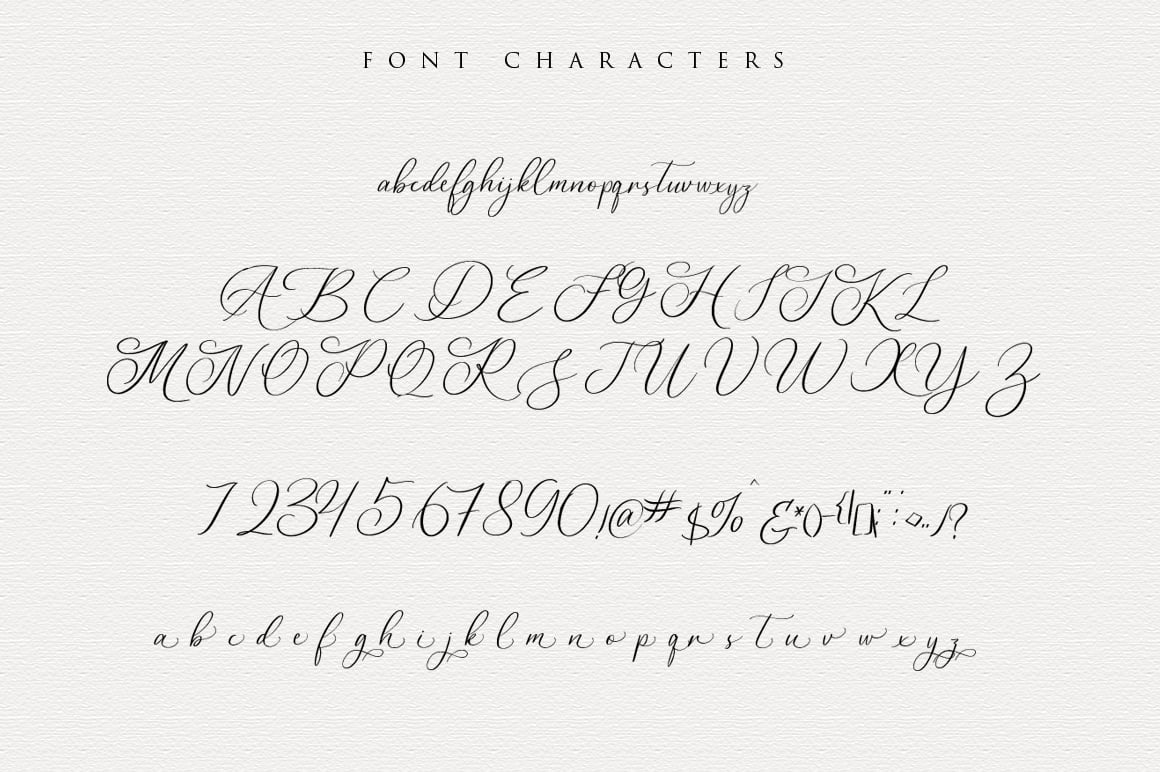 FONT CHARACTERS
abcdefghijklmnopqrstuvwxyz
ABCDEFGHIJKL
MNOPQRSTUVWXYZ
1234567890!@#$%^&*()-{|[];"':<>,./?
abcdefghijklmnopqrstuvwxyz